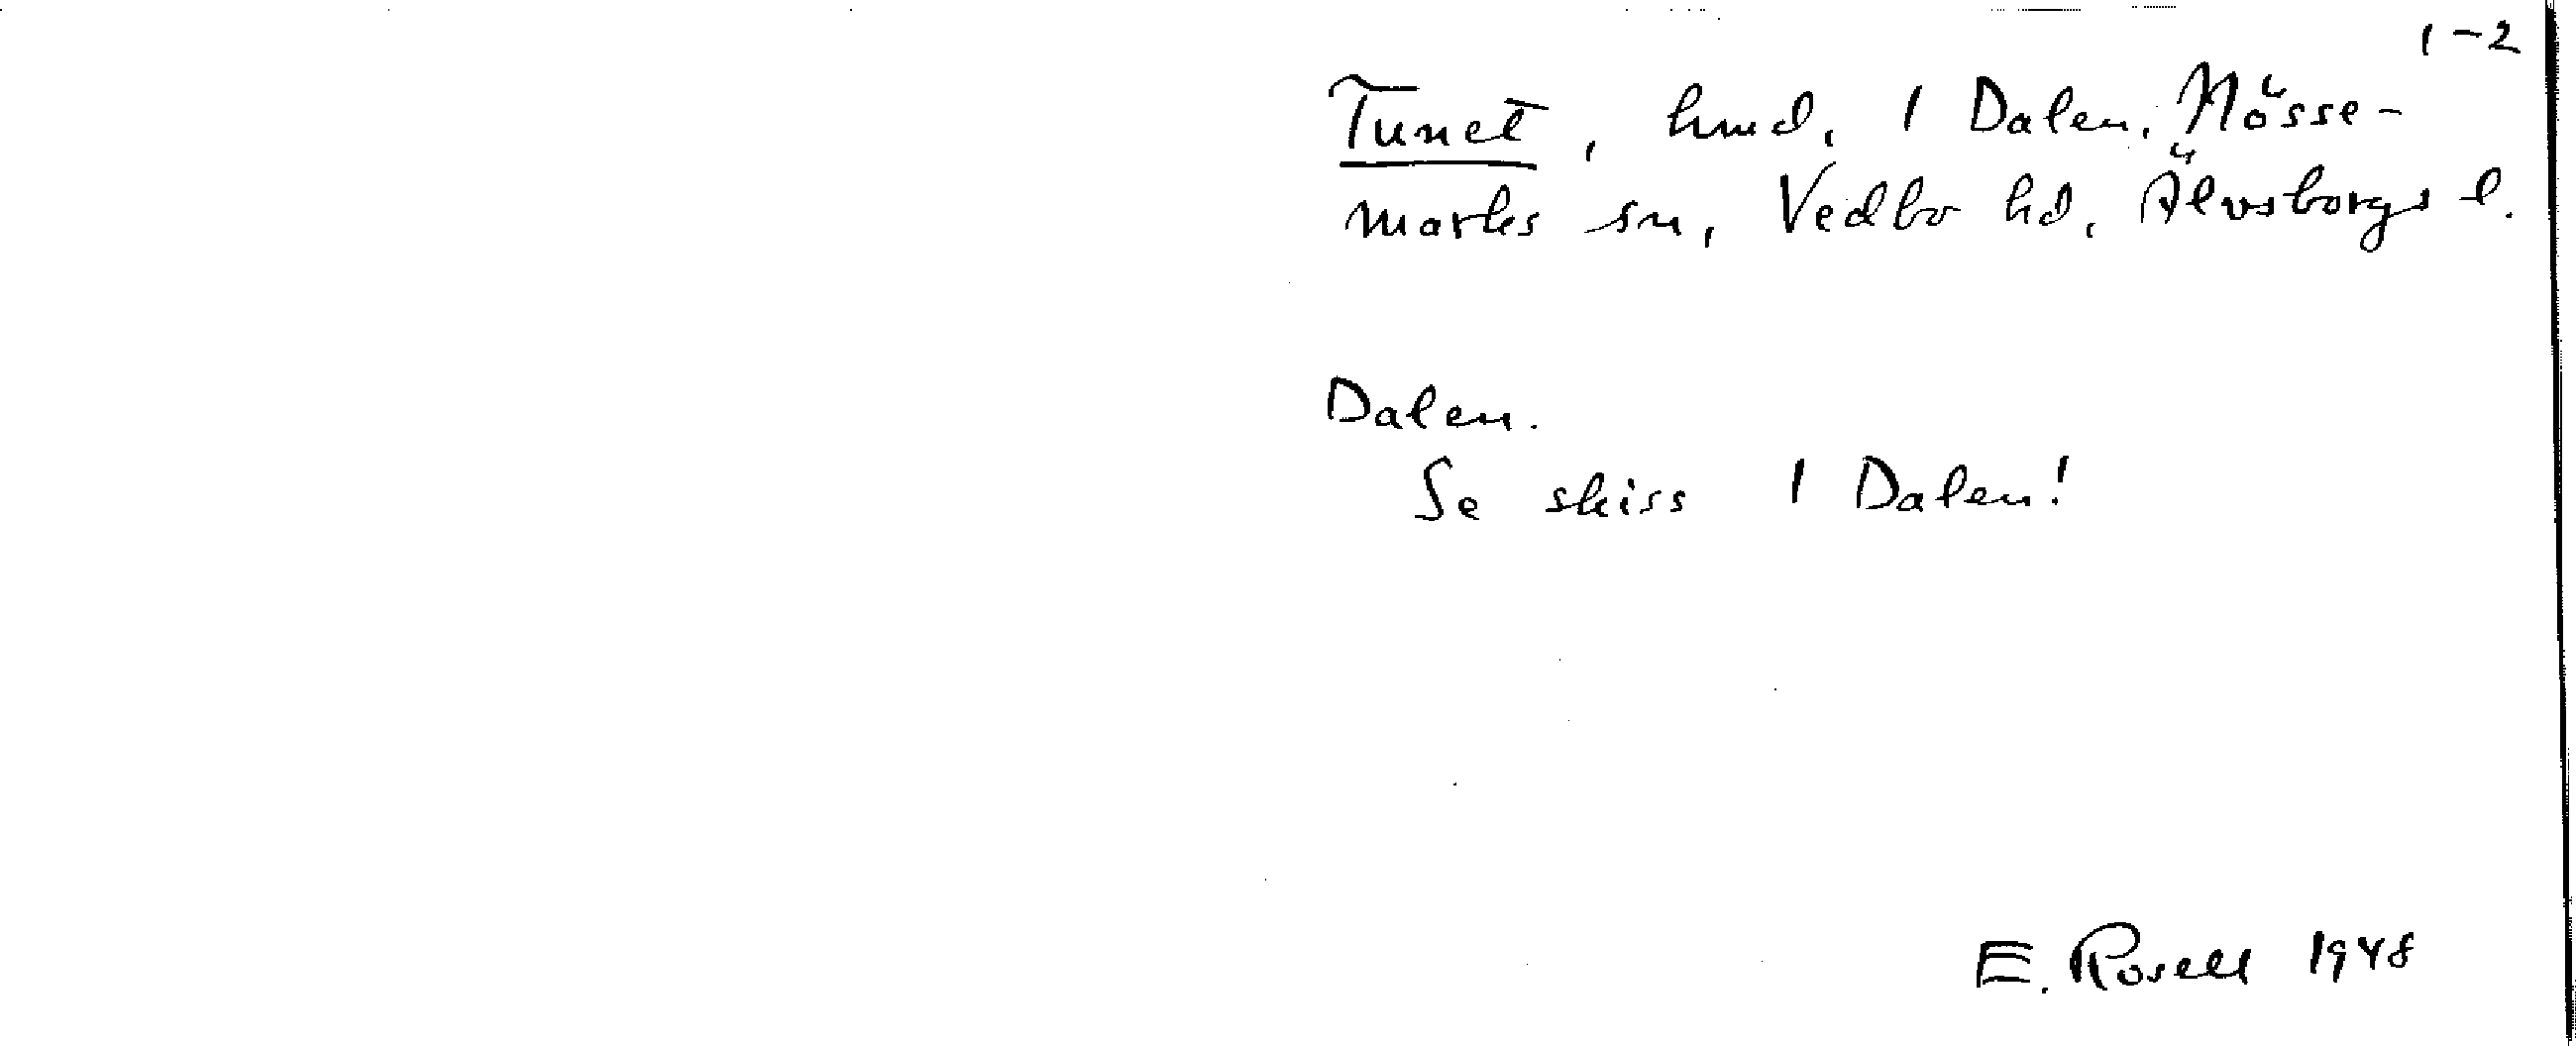 1-2
Tunet, hmd, 1 Dalen, Nösse-
marks sn, Vedbo hd, Älvsborgs l.
Dalen.
Se skiss 1 Dalen!
E. Rosell 1948